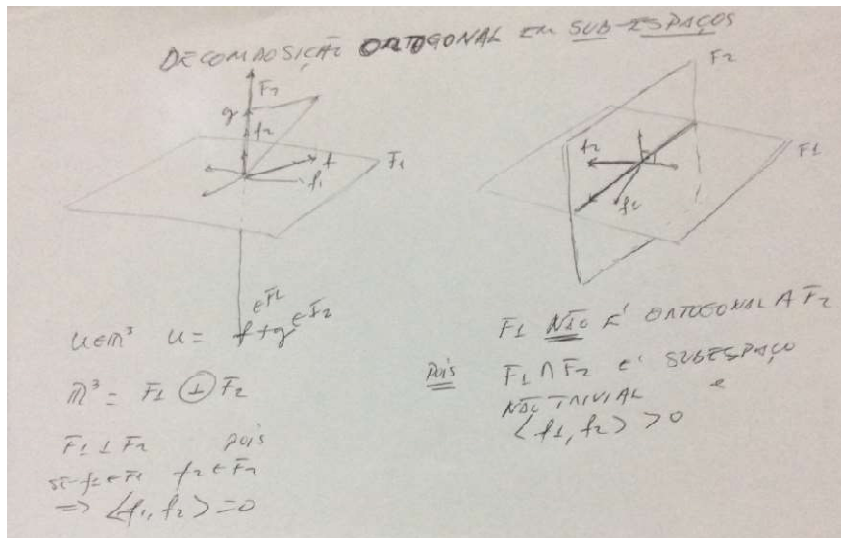 DECOMPOSIÇÃO ORTOGONAL EM SUB-ESPAÇOS
F2
g
f2
f
F1
f1
F2
f2
F1
∈F1
∈F2
u∈ℝ³ u = f+g
ℝ³ = F1 ⊥ F2
F1 ⊥ F2 pois
se f1 ∈ F1 f2 ∈ F2
=> <f1, f2> = 0
F1 NÃO É ORTOGONAL A F2
pois F1 ∩ F2 É SUBESPAÇO
NÃO TRIVIAL e
<f1, f2> > 0